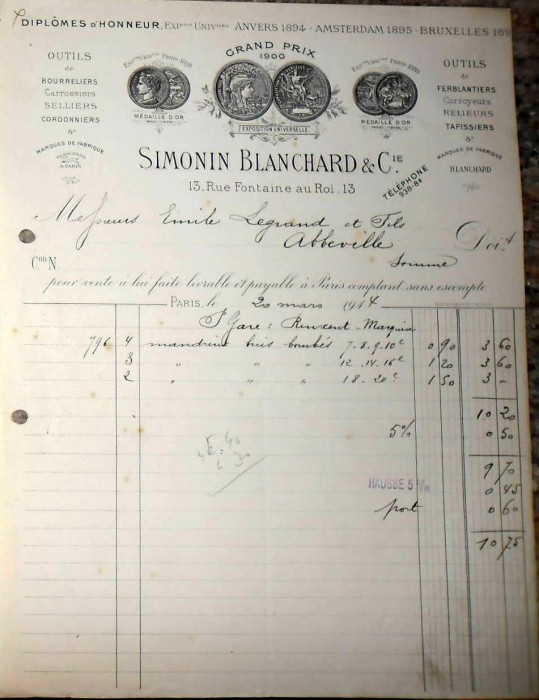 DIPLÔMES D'HONNEUR, EXPons UNIVlles ANVERS 1894 · AMSTERDAM 1895 · BRUXELLES 189
OUTILS
de
BOURRELIERS
Carrossiers
SELLIERS
CORDONNIERS
&a
MARQUES DE FABRIQUE
BLANCHARD
A PARIS
EXPon UNIVlle PARIS 1878
MÉDAILLE D'OR
GRAND PRIX
1900
EXPOSITION UNIVERSELLE
EXPon UNIVlle PARIS 1889
MÉDAILLE D'OR
OUTILS
de
FERBLANTIERS
Corroyeurs
RELIEURS
TAPISSIERS
&a
MARQUES DE FABRIQUE
BLANCHARD
SIMONIN BLANCHARD & CIE
13, Rue Fontaine au Roi, 13
TÉLÉPHONE
938-84
Messieurs Emile Legrand et Fils
Abbeville Doit
Somme
Con N.
pour vente à lui faite livrable et payable à Paris comptant sans escompte
PARIS, le 20 mars 1914
Pr Gare :
796 4 mandrins buis bombés 7.8.9.10c 0 90 3 60
3 " " " 12.14.16c 1 20 3 60
2 " " " 18.20c 1 50 3 -
10 20
5% 0 50
9 70
HAUSSE 5 % 0 45
port 0 60
10 75